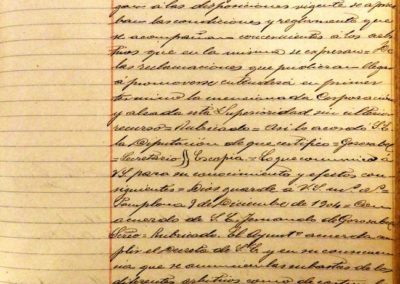 gan á las disposiciones vigente se aprue
ban las condiciones y reglamento que
se acompañan concernientes á los arbi
trios que en la misma se expresan = De
las reclamaciones que pudieran llegar
á promoverse entenderá en primer
termino la mencionada Corporación
y alzada esta Superioridad en ultimo
recurso = Rubricado = Así lo acordó S.E.
la Diputación de que certifico =
Secretario // Es copia = Lo que comunico á
VS. para su conocimiento y efectos con
siguientes = Dios guarde á VS. mª. aª.
Pamplona 9 de Diciembre de 190 = Con
acuerdo de S.E.
Srio = Rubricado. El Ayuntº. acuerda cum
plir el Decreto de S.E. y en su consecuen
cia que se anuncien las subastas de los
diferentes arbitrios como de costum